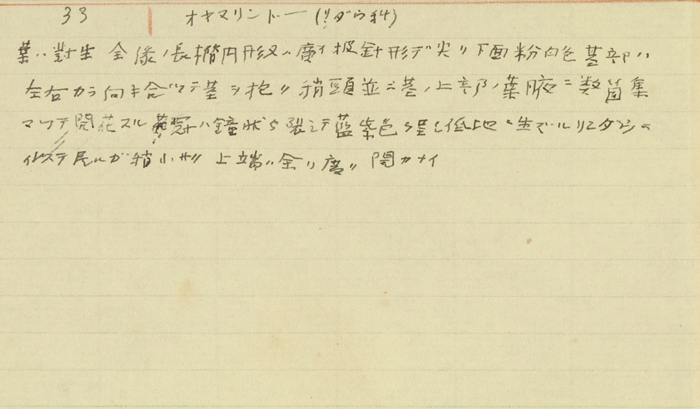 33 オヤマリンドー (リンダウ科)
葉ハ對生 全縁ノ長楕円形又ハ廣イ披針形デ尖リ 下面粉白色 基部ハ
左右カラ向キ合ツテ茎ヲ抱ク 梢頭並ニ茎ノ上部ノ葉腋ニ数箇集
マツテ開花スル 花冠ハ鐘状5裂シテ藍紫色ヲ呈シ低地ニ生ズルリンダウニ
似ステ居ルガ稍小サク 上端ハ余リ廣ク開カナイ